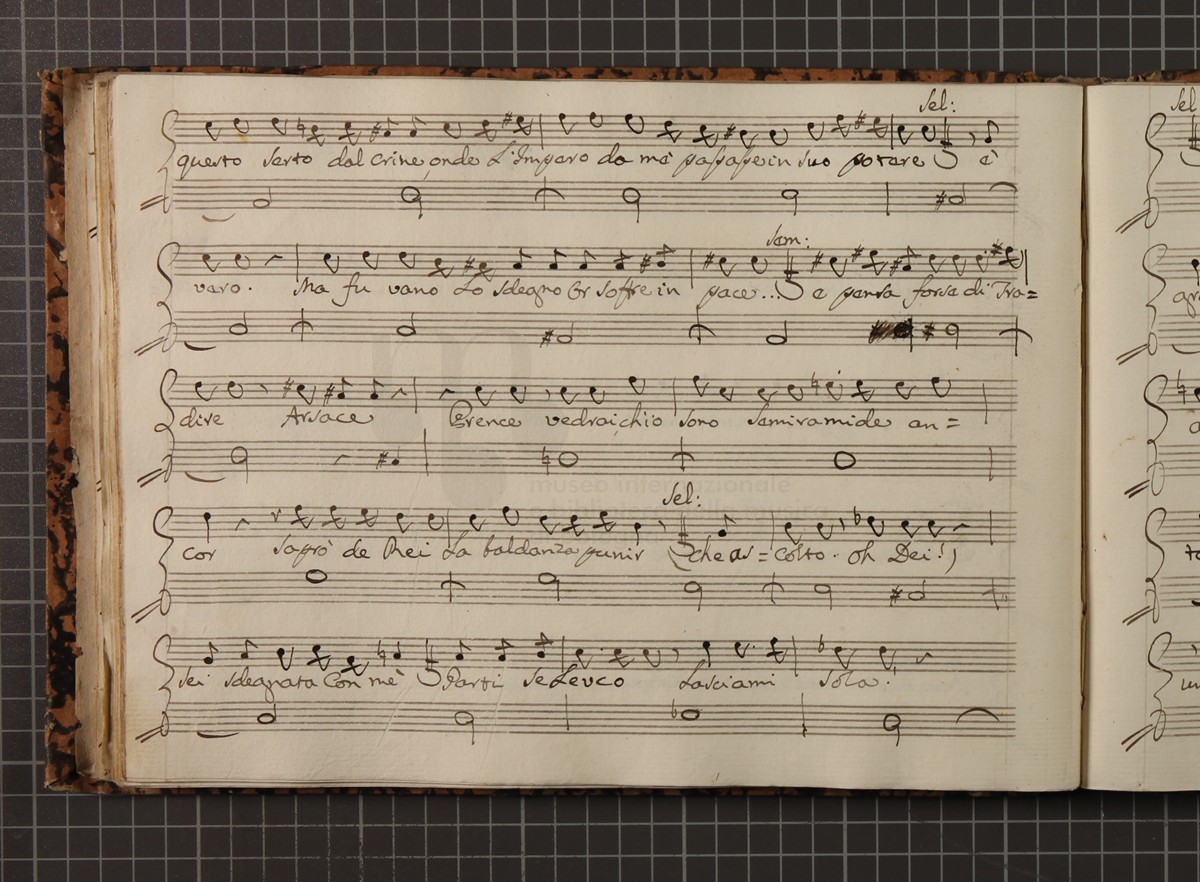 Sel:
questo serto dal crine onde L'Impero da me passasse in suo potere è
Sem:
vero. Ma fu vano Lo sdegno Or soffre in pace... e pensa forse di Tra=
dire Arsace Prence vedrai ch'io sono Semiramide an=
museo internazionale
Sel:
cor saprò de Rei La baldanza punir (che as=colto. oh Dei!)
sei sdegnata Con mè Parti Seleuco Lasciami sola.
Sel